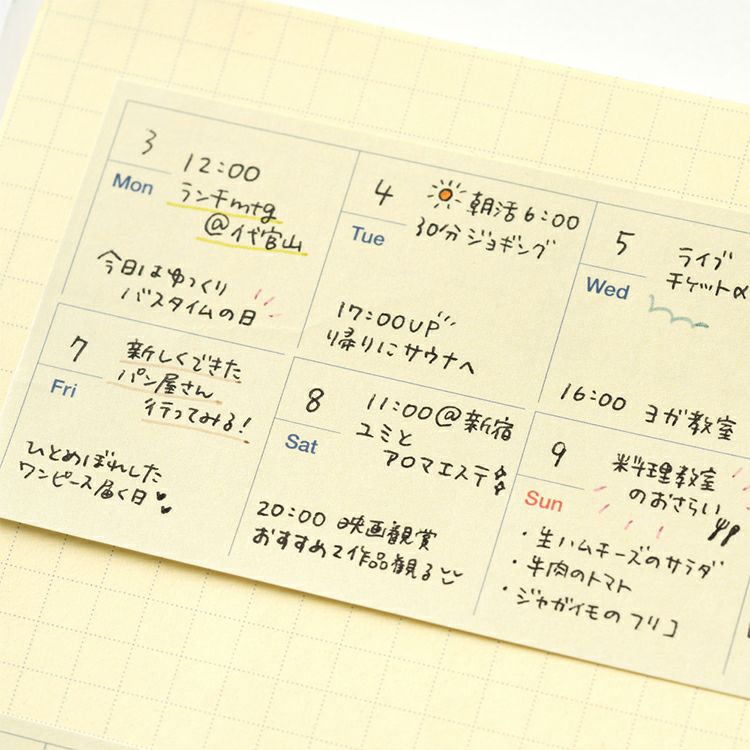 3
Mon
12:00
ランチmtg
@代官山
今日はゆっくり
バスタイムの日
4
Tue
朝活 6:00
30分ジョギング
17:00UP
帰りにサウナへ
5
Wed
ライブ
チケット
16:00 ヨガ教室
7
Fri
新しくできた
パン屋さん
行ってみる!
ひとめぼれした
ワンピース届く日
8
Sat
11:00@新宿
ユミと
アロマエステ
20:00 映画観賞
おすすめ2作品観る
9
Sun
料理教室
のおさらい
・生ハムチーズのサラダ
・牛肉のトマト
・ジャガイモのフリコ